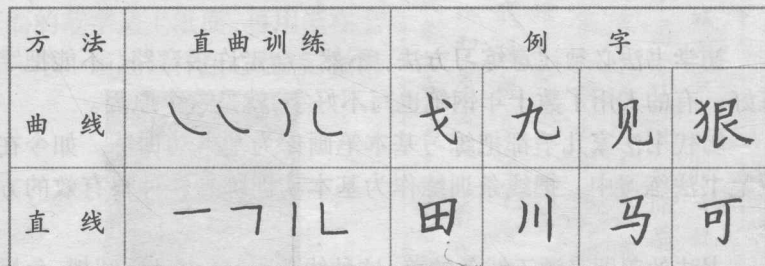 方法 直曲训练 例字
曲线 ㇏㇃丿乚 戈九见狠
直线 一𠃍丨𠃊 田川马可